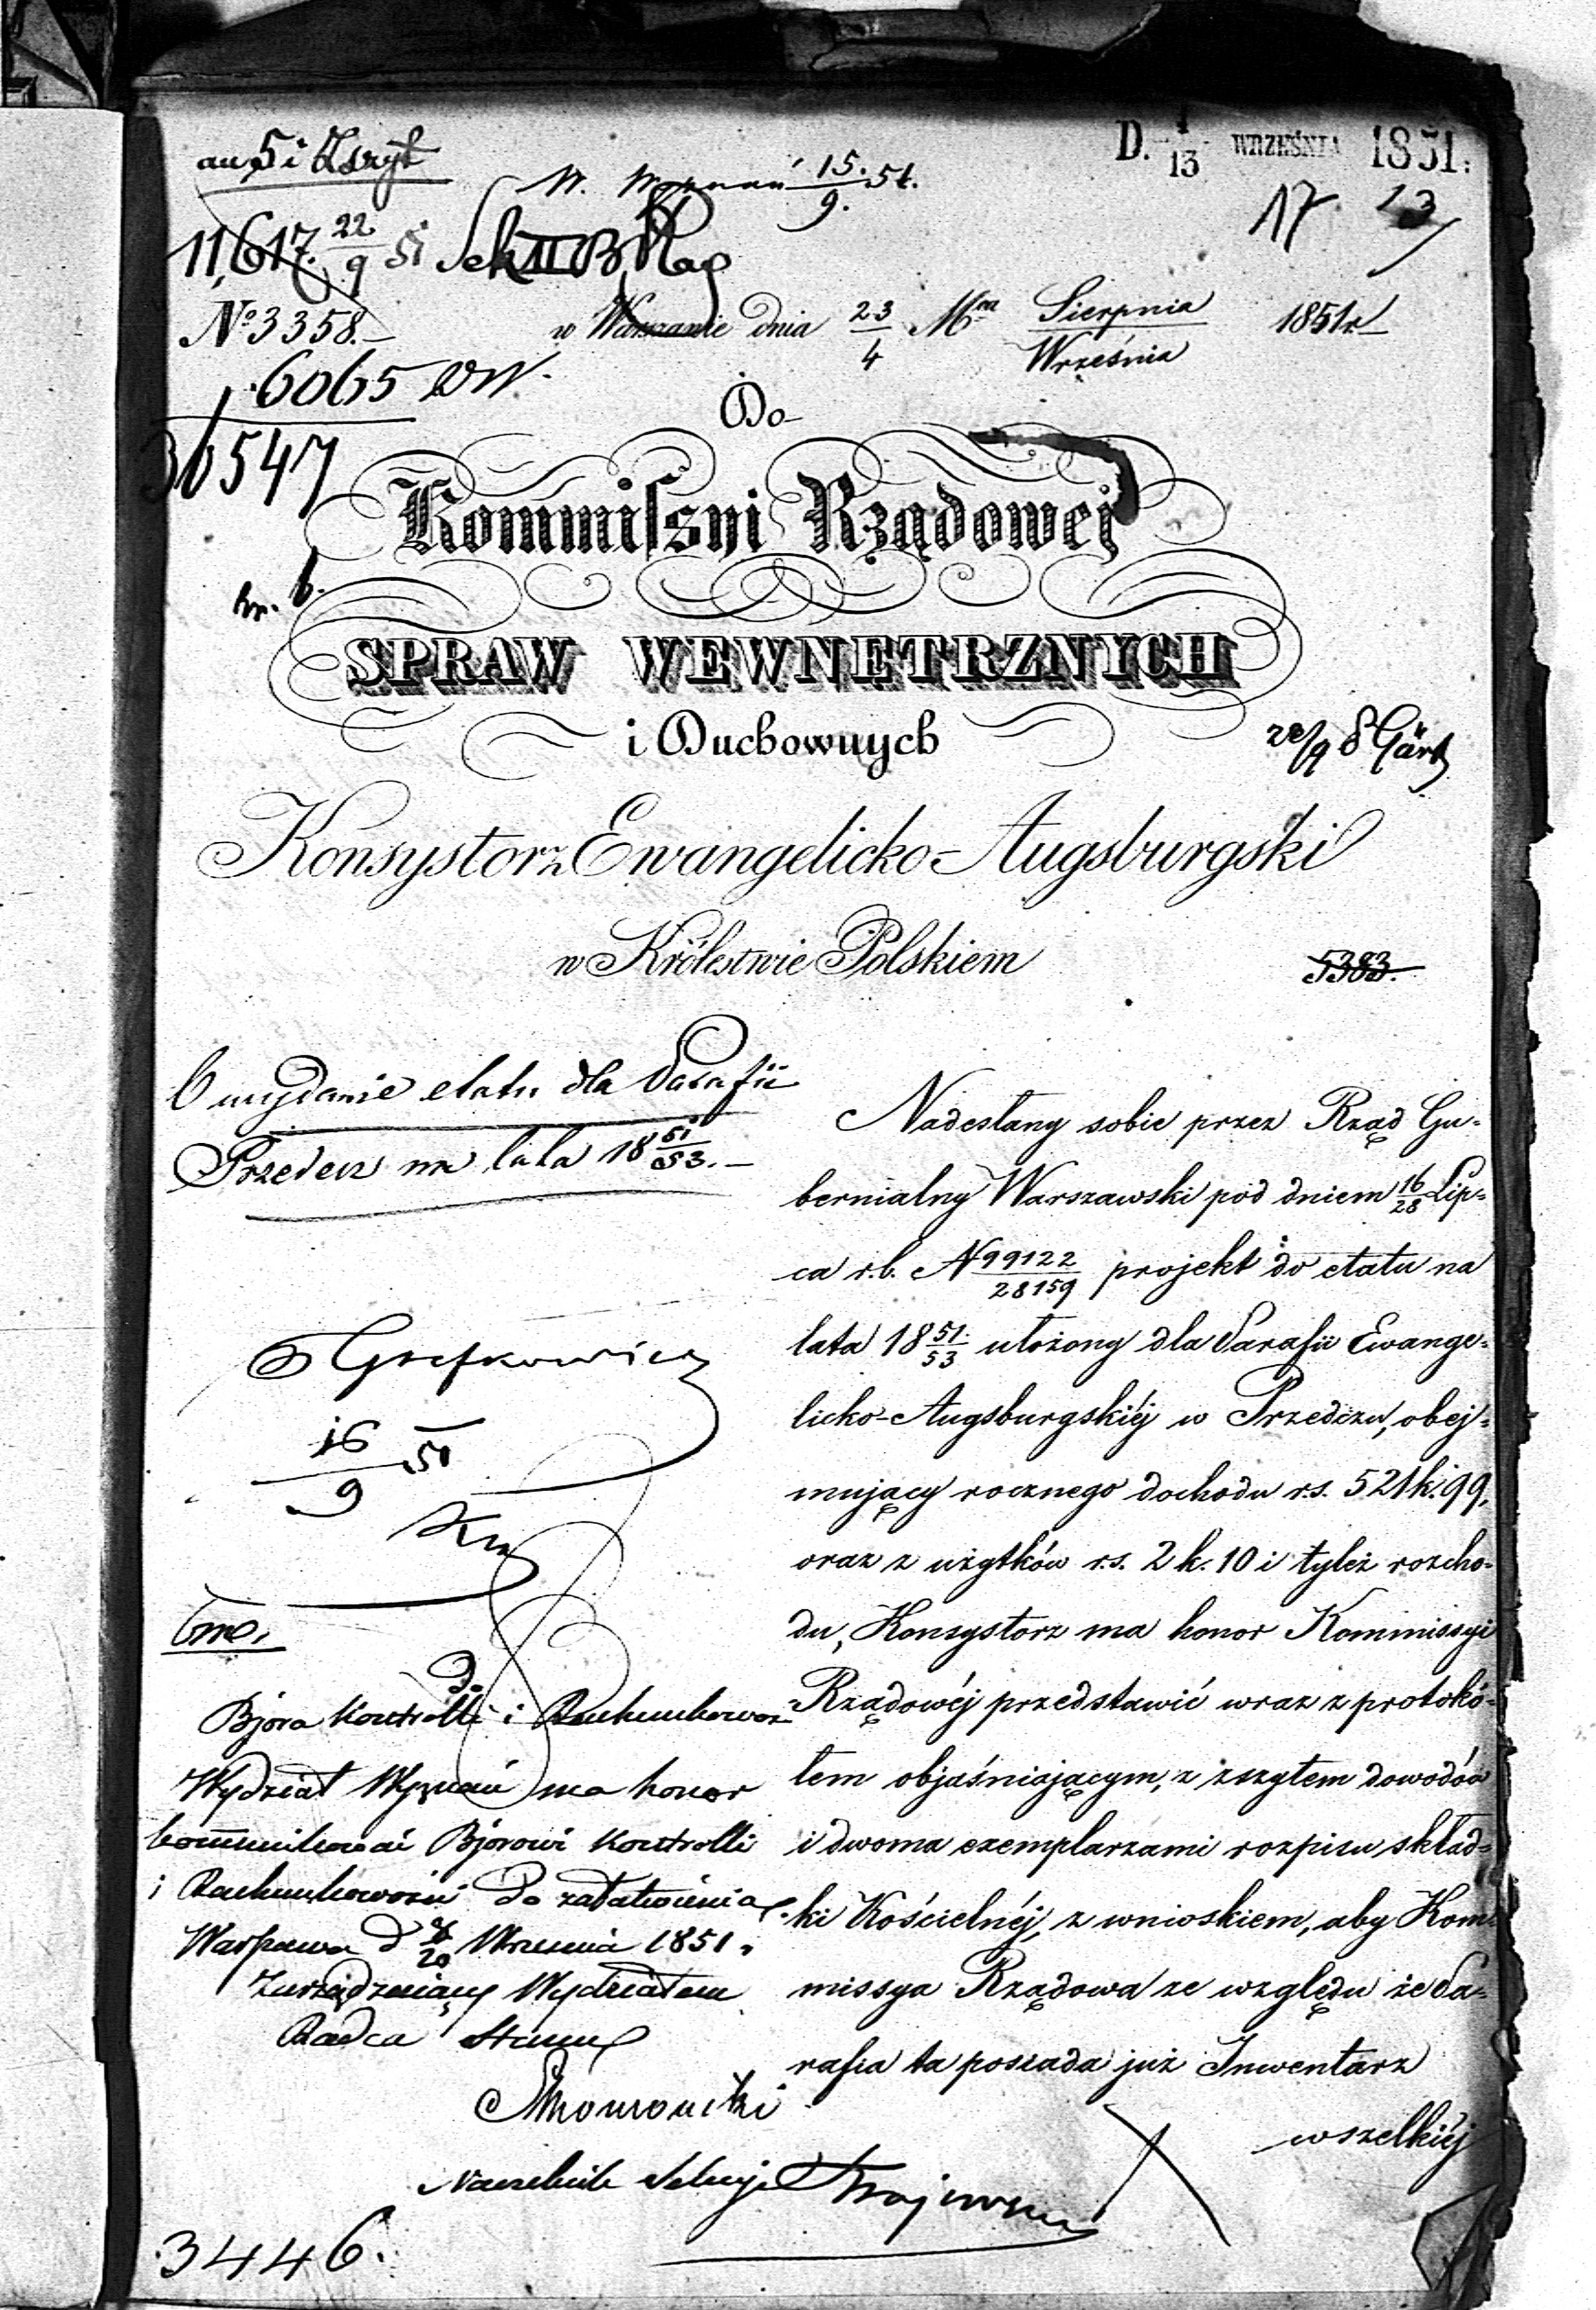 an 5 i Zszyt
D. 1/13 WRZEŚNIA 1851.
W. Wyznań 15/9. 51.
17
11,617. 22/9 51 Sek II B
No 3358.
w Warszawie dnia 23/4 Mca Sierpnia/Września 1851 r
6065 WW.
36547
Do
Kommissyi Rządowej
SPRAW WEWNĘTRZNYCH
i Duchownych
Konsystorz Ewangelicko-Augsburgski
w Królestwie Polskiem
5383.
O wydanie etatu dla Parafii
Przedecz na lata 18 51/53.
Nadesłany sobie przez Rząd Gu-
bernialny Warszawski pod dniem 16/28 Lip-
ca r.b. N 99122/28159 projekt do etatu na
lata 18 51/53 ułożony dla Parafii Ewange-
licko-Augsburgskiéj w Przedczu, obej-
mujący rocznego dochodu r.s. 521 k. 99,
oraz z użytków r.s. 2 k. 10 i tyleż rozcho-
du, Konsystorz ma honor Kommissyi
Rządowéj przedstawić wraz z protokó-
łem objaśniającym, z zszytem dowodów
i dwoma exemplarzami rozpisu skład-
ki Kościelnéj, z wnioskiem, aby Kom-
missya Rządowa ze względu że Pa-
rafia ta posiada już Inwentarz
wszelkiéj
16/9 51
D.
Bjóra Kontrolli i Rachunkowoś
Wydział Wyznań ma honor
kommunikować Bjórowi Kontrolli
i Rachunkowości do załatwienia.
Warszawa d 8/20 Września 1851.
Zarządzający Wydziałem
Radca Stanu
Naczelnik Sekcyi
3446.